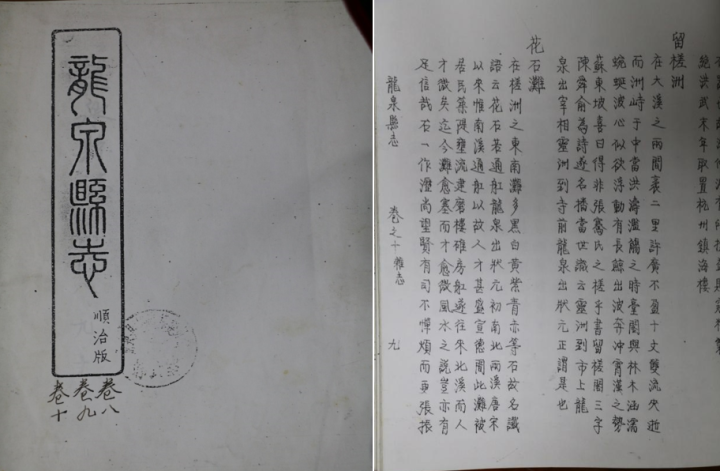 龍泉縣志
順治版
卷八
卷九
卷十
乾洪武末年取置杭州鎮海樓
留槎洲
在大溪之兩間袤二里許廣不盈十丈雙流夾逝
而洲峙于中當洪濤濫觴之時臺閣與林木涵濡
蜿蜒波心似欲浮動有長鯨出波奔沖霄漢之勢
蘇東坡喜曰得非張騫氏之槎乎書留槎閣三字
陳舜俞為詩遂名播當世讖云靈洲到市上龍
泉出宰相靈洲到寺前龍泉出狀元正謂是也
花石灘
在槎洲之東南灘多黑白黃紫青赤等石故名讖
語云花石若通舡龍泉出狀元初南北兩溪唐宋
以來惟南溪通舡以故人才甚盛宣德間此灘被
居民築隄壅流建磨樓碓房舡遂往來北溪而人
才微矣迄今灘愈塞而才愈微風水之說豈亦有
足信哉石一作瀝尚望賢有司不憚煩而亟張振
龍泉縣志
卷之十雜志
九